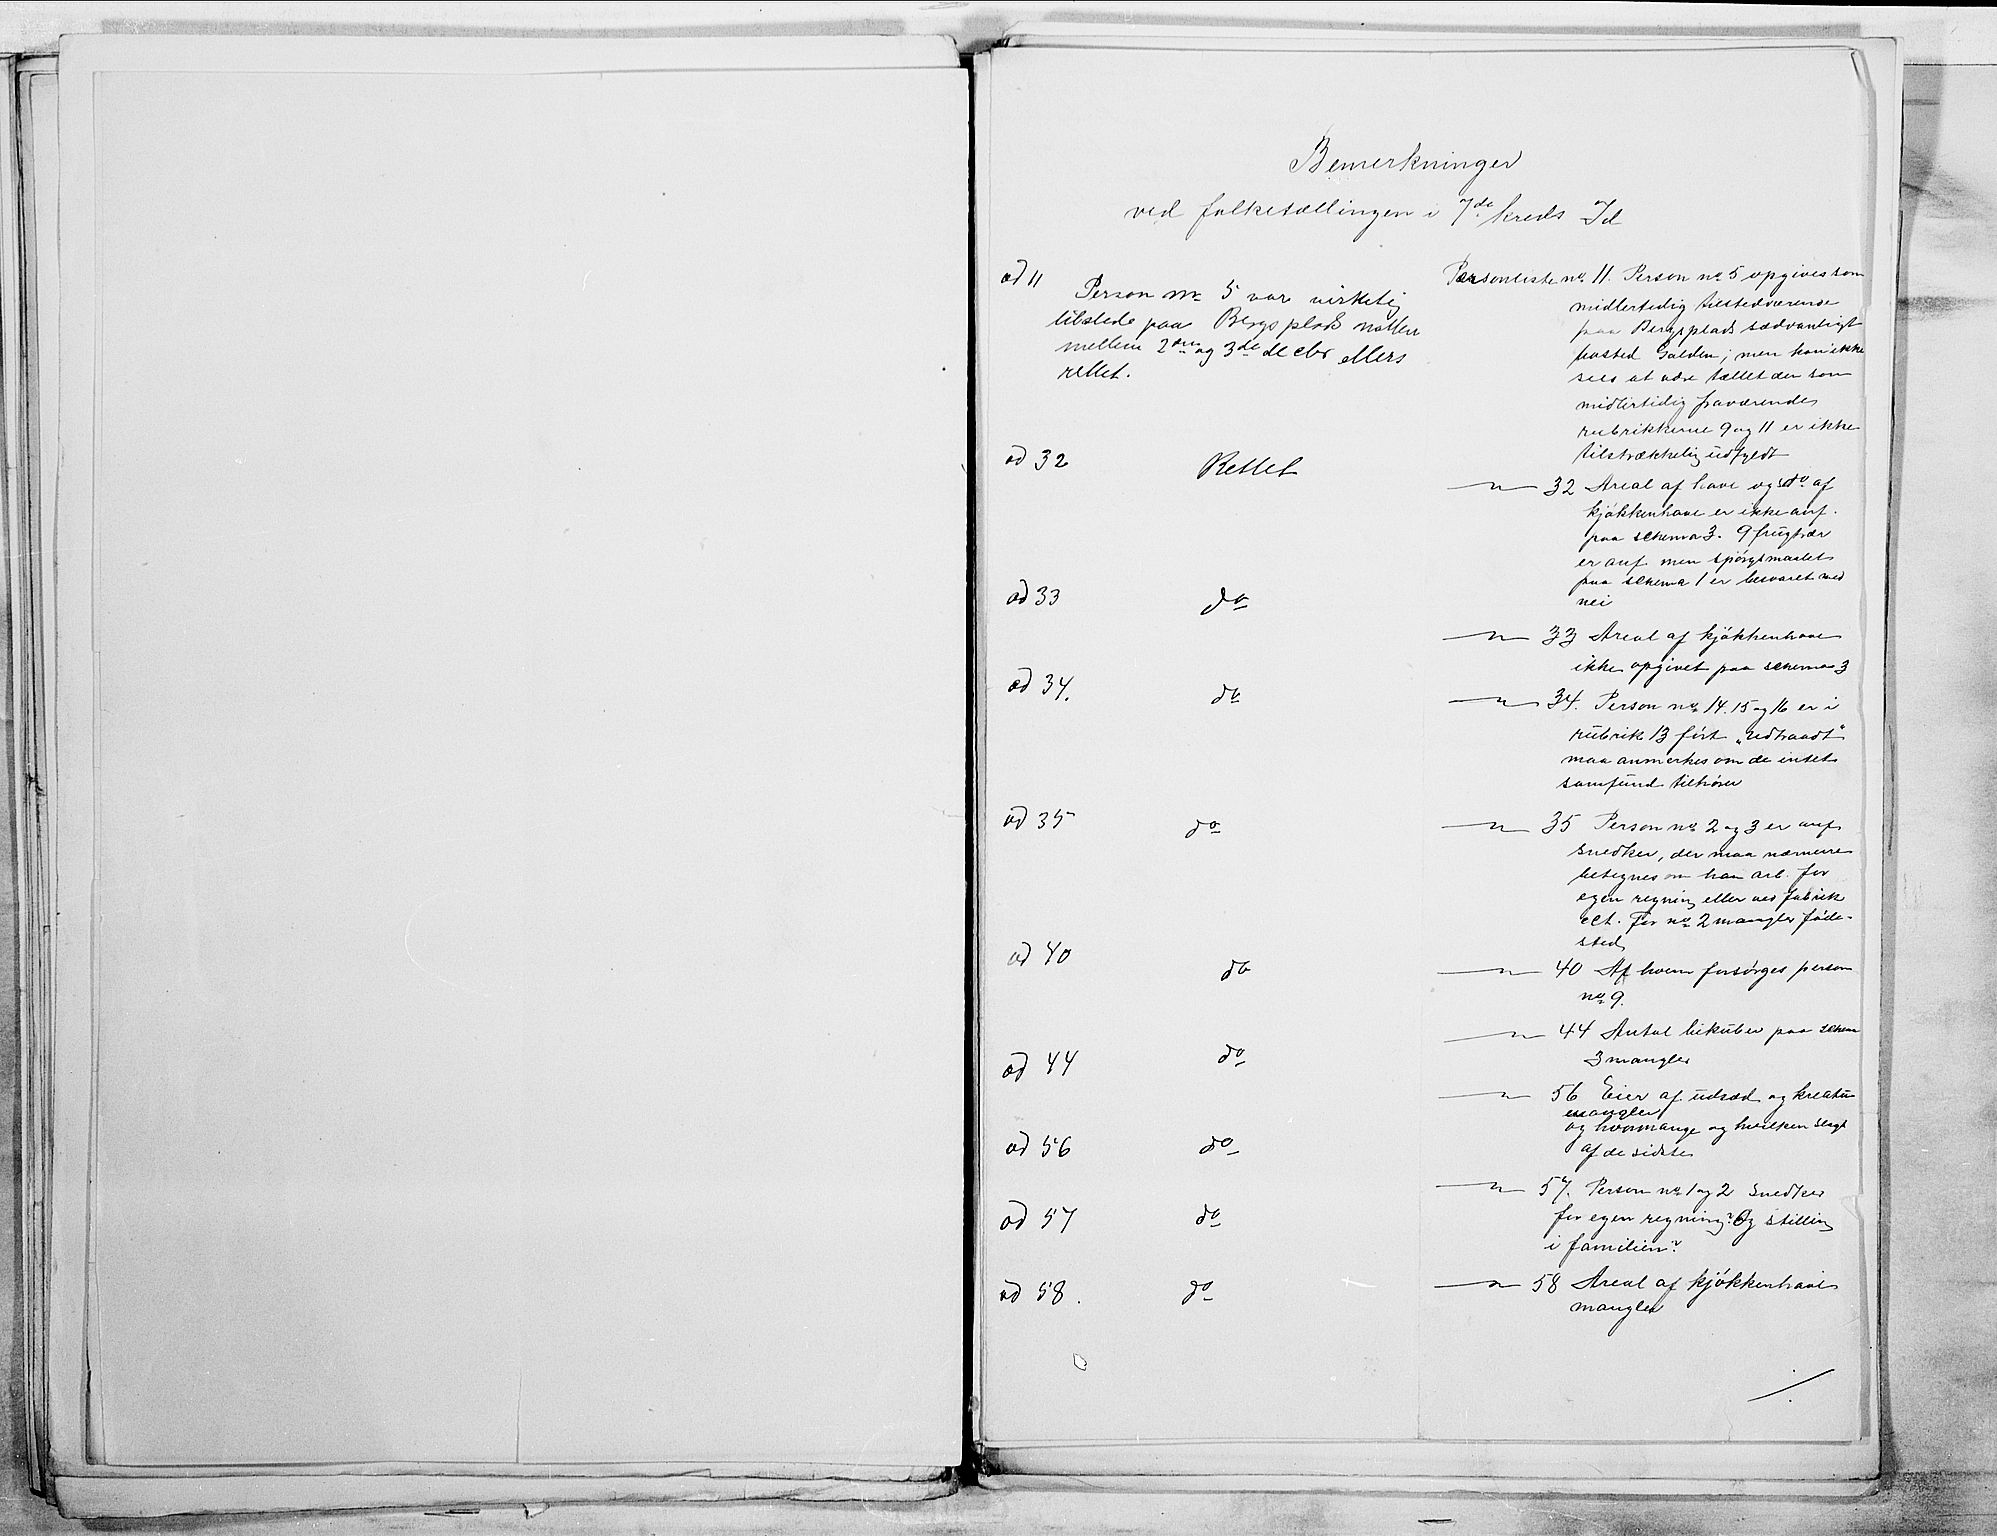 Bemerkninger
ved folketællingen i 7de kreds Id
ad 11
Person no 5 var virkelig
tilstede paa Bergsplads natten
mellem 2den og 3de decbr ellers
rettet.
ad 32 Rettet
ad 33 do
ad 34. do
ad 35 do
ad 40 do
ad 44 do
ad 56 do
ad 57 do
ad 58. do
Personliste no 11. Person no 5 opgives som
midlertidig tilstedværende
paa Bergsplads sædvanligt
bosted Galden; men han ikke
sees at være tællet der som
midlertidig fraværende
rubrikkerne 9 og 11 er ikke
tilstrækkelig udfyldt
— " — 32 Areal af have og do af
kjøkkenhave er ikke anf.
paa schema 3. 9 frugttrær
er anf men spørgsmaalet
paa schema 1 er besvaret med
nei
— " — 33 Areal af kjøkkenhave
ikke opgivet paa schema 3
— " — 34. Person no 14. 15 og 16 er i
rubrik 13 ført „udtraadt"
maa anmerkes om de intet
samfund tilhører
— " — 35 Person no 2 og 3 er anf
snedker, der maa nærmere
betegnes om han arb. for
egen regning eller ved fabrik
ect. For no 2 mangler føde-
sted
— " — 40 Af hvem forsørges person
no 9.
— " — 44 Antal bikuber paa schema
3 mangler
— " — 56 Eier af udsæd og kreatur
mangler
og hvormange og hvilken slags
af de sidste
— " — 57. Person no 1 og 2 snedker
for egen regning? Og stilling
i familien?
— " — 58 Areal af kjøkkenhave
mangler